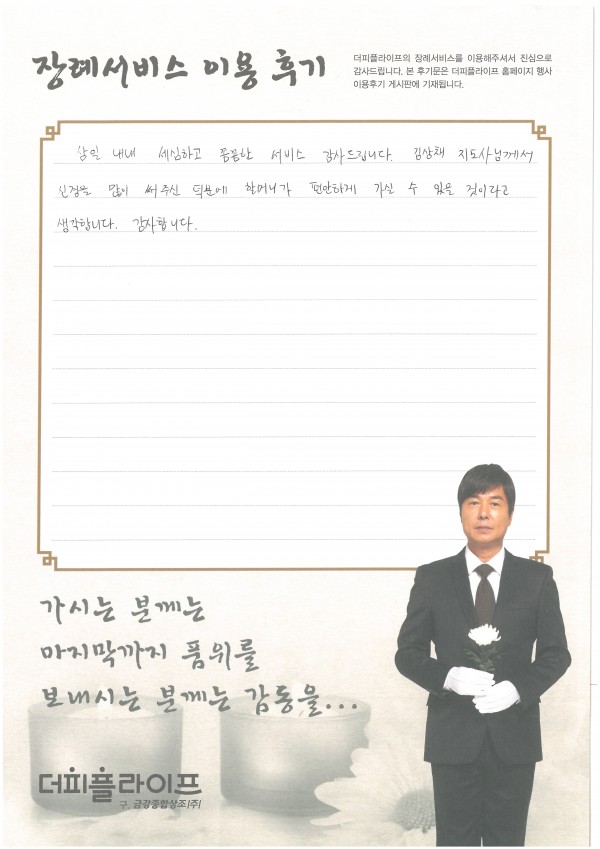 장례서비스 이용 후기
더피플라이프의 장례서비스를 이용해주셔서 진심으로
감사드립니다. 본 후기문은 더피플라이프 홈페이지 행사
이용후기 게시판에 기재됩니다.
삼일 내내 세심하고 꼼꼼한 서비스 감사드립니다. 김상채 지도사님께서
신경을 많이 써주신 덕분에 할머니가 편안하게 가실 수 있을 것이라고
생각합니다. 감사합니다.
가시는 분께는
마지막까지 품위를
보내시는 분께는 감동을...
더피플라이프
구. 금강종합상조(주)